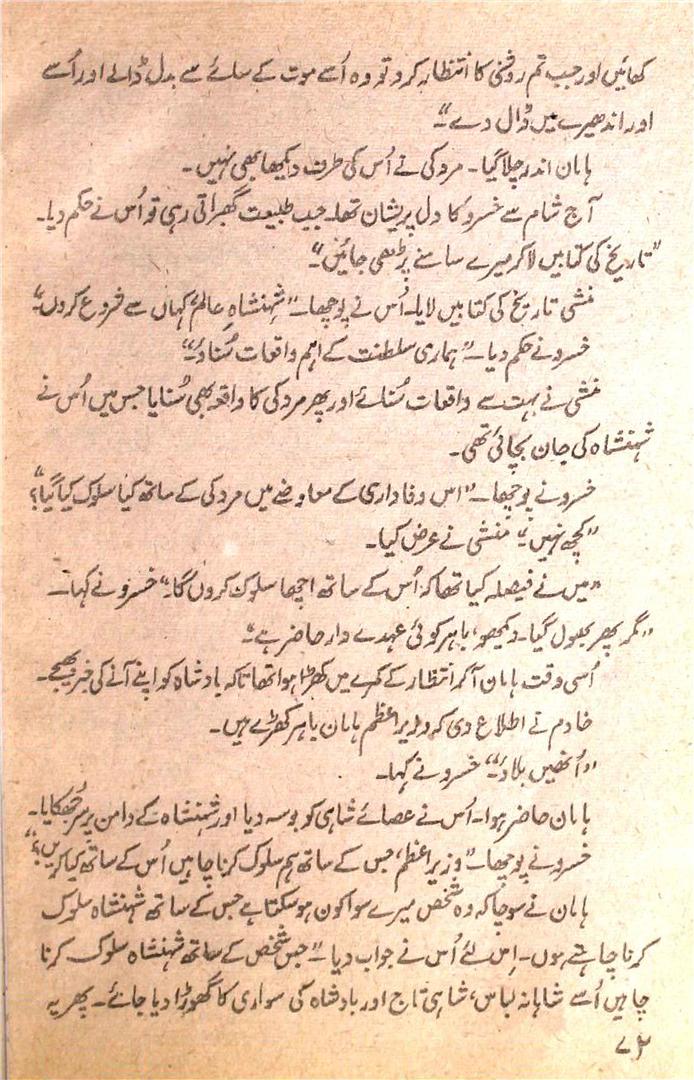 کھائیں اور جب تم روشنی کا انتظار کرو تو وہ اُسے موت کے سائے سے بدل ڈالے اور اُسے
اور اندھیرے میں ڈال دے“۔
ہامان اندر چلا گیا۔ مردکی نے اُس کی طرف دیکھا بھی نہیں۔
آج شام سے خسرو کا دل پریشان تھا۔ جب طبیعت گھبراتی رہی تو اُس نے حکم دیا۔
”تاریخ کی کتابیں لا کر میرے سامنے پڑھی جائیں“۔
منشی تاریخ کی کتابیں لایا۔ اُس نے پوچھا۔ ”شہنشاہِ عالم، کہاں سے شروع کروں“۔
خسرو نے حکم دیا۔ ”ہماری سلطنت کے اہم واقعات سُناؤ“۔
منشی نے بہت سے واقعات سُنائے اور پھر مردکی کا واقعہ بھی سُنایا جس میں اُس نے
شہنشاہ کی جان بچائی تھی۔
خسرو نے پوچھا۔ ”اس وفاداری کے معاوضے میں مردکی کے ساتھ کیا سلوک کیا گیا؟“
”کچھ نہیں“؛ منشی نے عرض کیا۔
”میں نے فیصلہ کیا تھا کہ اُس کے ساتھ اچھا سلوک کروں گا۔“ خسرو نے کہا۔
”مگر پھر بھول گیا۔ دیکھو، باہر کوئی عہدے دار حاضر ہے“۔
اُسی وقت ہامان آ کر انتظار کے کمرے میں کھڑا ہوا تھا تاکہ بادشاہ کو اپنے آنے کی خبر بھیجے۔
خادم نے اطلاع دی کہ وزیراعظم ہامان باہر کھڑے ہیں۔
”اُنھیں بلاؤ“ خسرو نے کہا۔
ہامان حاضر ہوا۔ اُس نے عصائے شاہی کو بوسہ دیا اور شہنشاہ کے دامن پر سر جُھکایا۔
خسرو نے پوچھا۔ ”وزیراعظم، جس کے ساتھ ہم سلوک کرنا چاہیں اُس کے ساتھ کیا کریں؟“
ہامان نے سوچا کہ وہ شخص میرے سوا کون ہو سکتا ہے جس کے ساتھ شہنشاہ سلوک
کرنا چاہتے ہوں۔ اِس لئے اُس نے جواب دیا۔ ”جس شخص کے ساتھ شہنشاہ سلوک کرنا
چاہیں اُسے شاہانہ لباس، شاہی تاج اور بادشاہ کی سواری کا گھوڑا دیا جائے۔ پھر یہ
۷۴